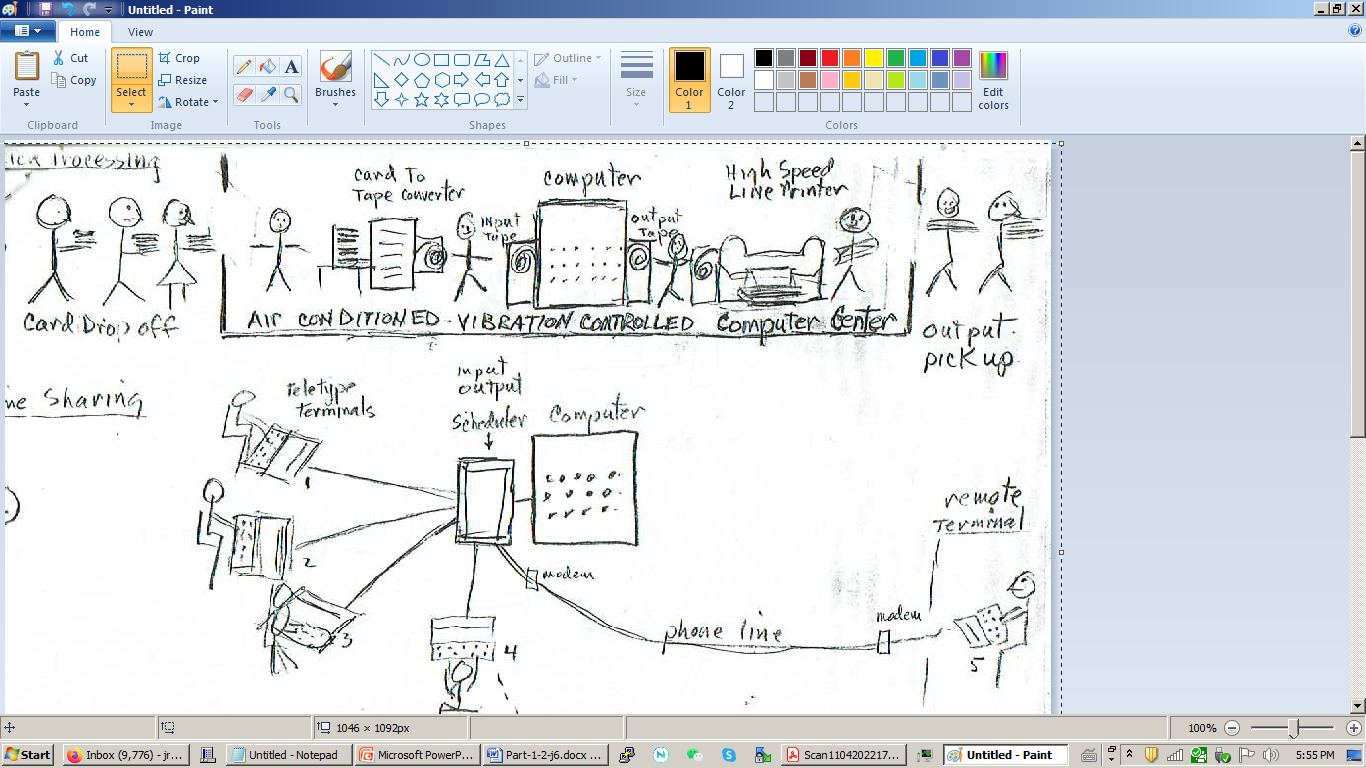 Untitled - Paint
Home
View
Paste
Cut
Copy
Clipboard
Select
Crop
Resize
Rotate
Image
Tools
Brushes
Shapes
Outline
Fill
Size
Color
1
Color
2
Edit
colors
Colors
Processing
Card To
Tape Converter
Computer
High Speed
Line Printer
Input
Tape
output
Tape
Card Drop off
AIR CONDITIONED - VIBRATION CONTROLLED Computer Center
output
pickup
me Sharing
Teletype
terminals
Input
output
Scheduler
Computer
1
2
3
4
modem
phone line
modem
remote
Terminal
5
1046 × 1092px
100%
Start
Inbox (9,776) - jr...
Untitled - Notepad
Microsoft PowerP...
Part-1-2-j6.docx ...
Scan1104202217...
Untitled - Paint
5:55 PM